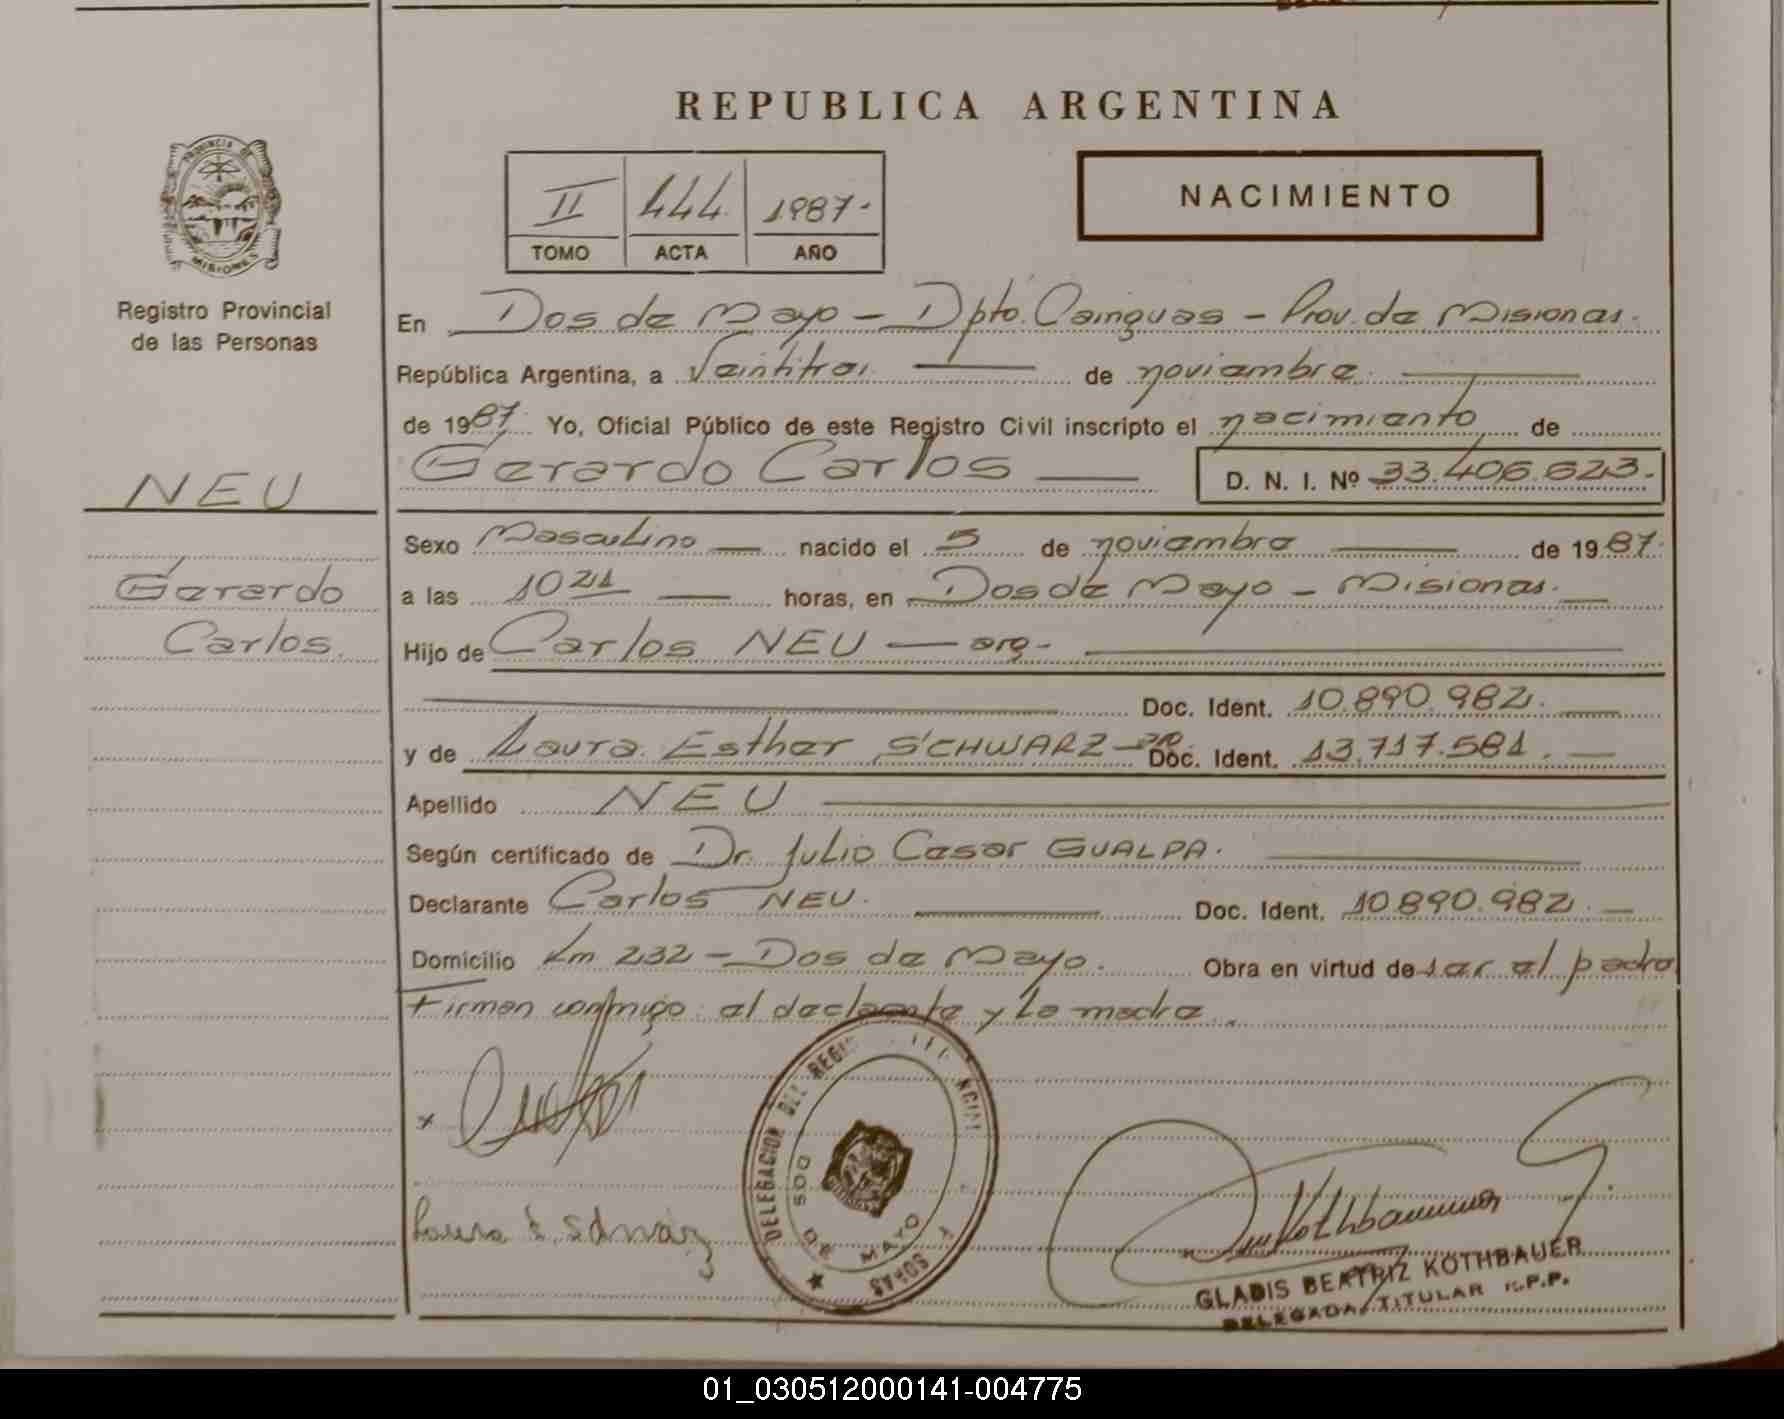 REPUBLICA ARGENTINA
PROVINCIA DE
MISIONES
Registro Provincial
de las Personas
II 444 1987.-
TOMO ACTA AÑO
NACIMIENTO
En Dos de Mayo - Dpto. Cainguas - Prov. de Misiones.
República Argentina, a Veintitres de noviembre
de 1987. Yo, Oficial Público de este Registro Civil inscripto el nacimiento de
Gerardo Carlos D. N. I. Nº 33.406.623.-
NEU
Gerardo
Carlos.
Sexo Masculino nacido el 5 de noviembre de 1987.
a las 10 21 horas, en Dos de Mayo - Misiones.
Hijo de Carlos NEU - arg.-
Doc. Ident. 10.890.982.
y de Laura Esther SCHWARZ - arg. Doc. Ident. 13.717.581.
Apellido NEU
Según certificado de Dr. Julio Cesar GUALPA.
Declarante Carlos NEU. Doc. Ident. 10.890.982.
Domicilio Km 232 - Dos de Mayo. Obra en virtud de ser el padre
Firman conmigo: el declarante y la madre.
x
Laura E. Schwarz
DELEGACION DEL REGIS
DOS DE MAYO
Kothbauer
GLADIS BEATRIZ KOTHBAUER
DELEGADA TITULAR R.P.P.
01_030512000141-004775